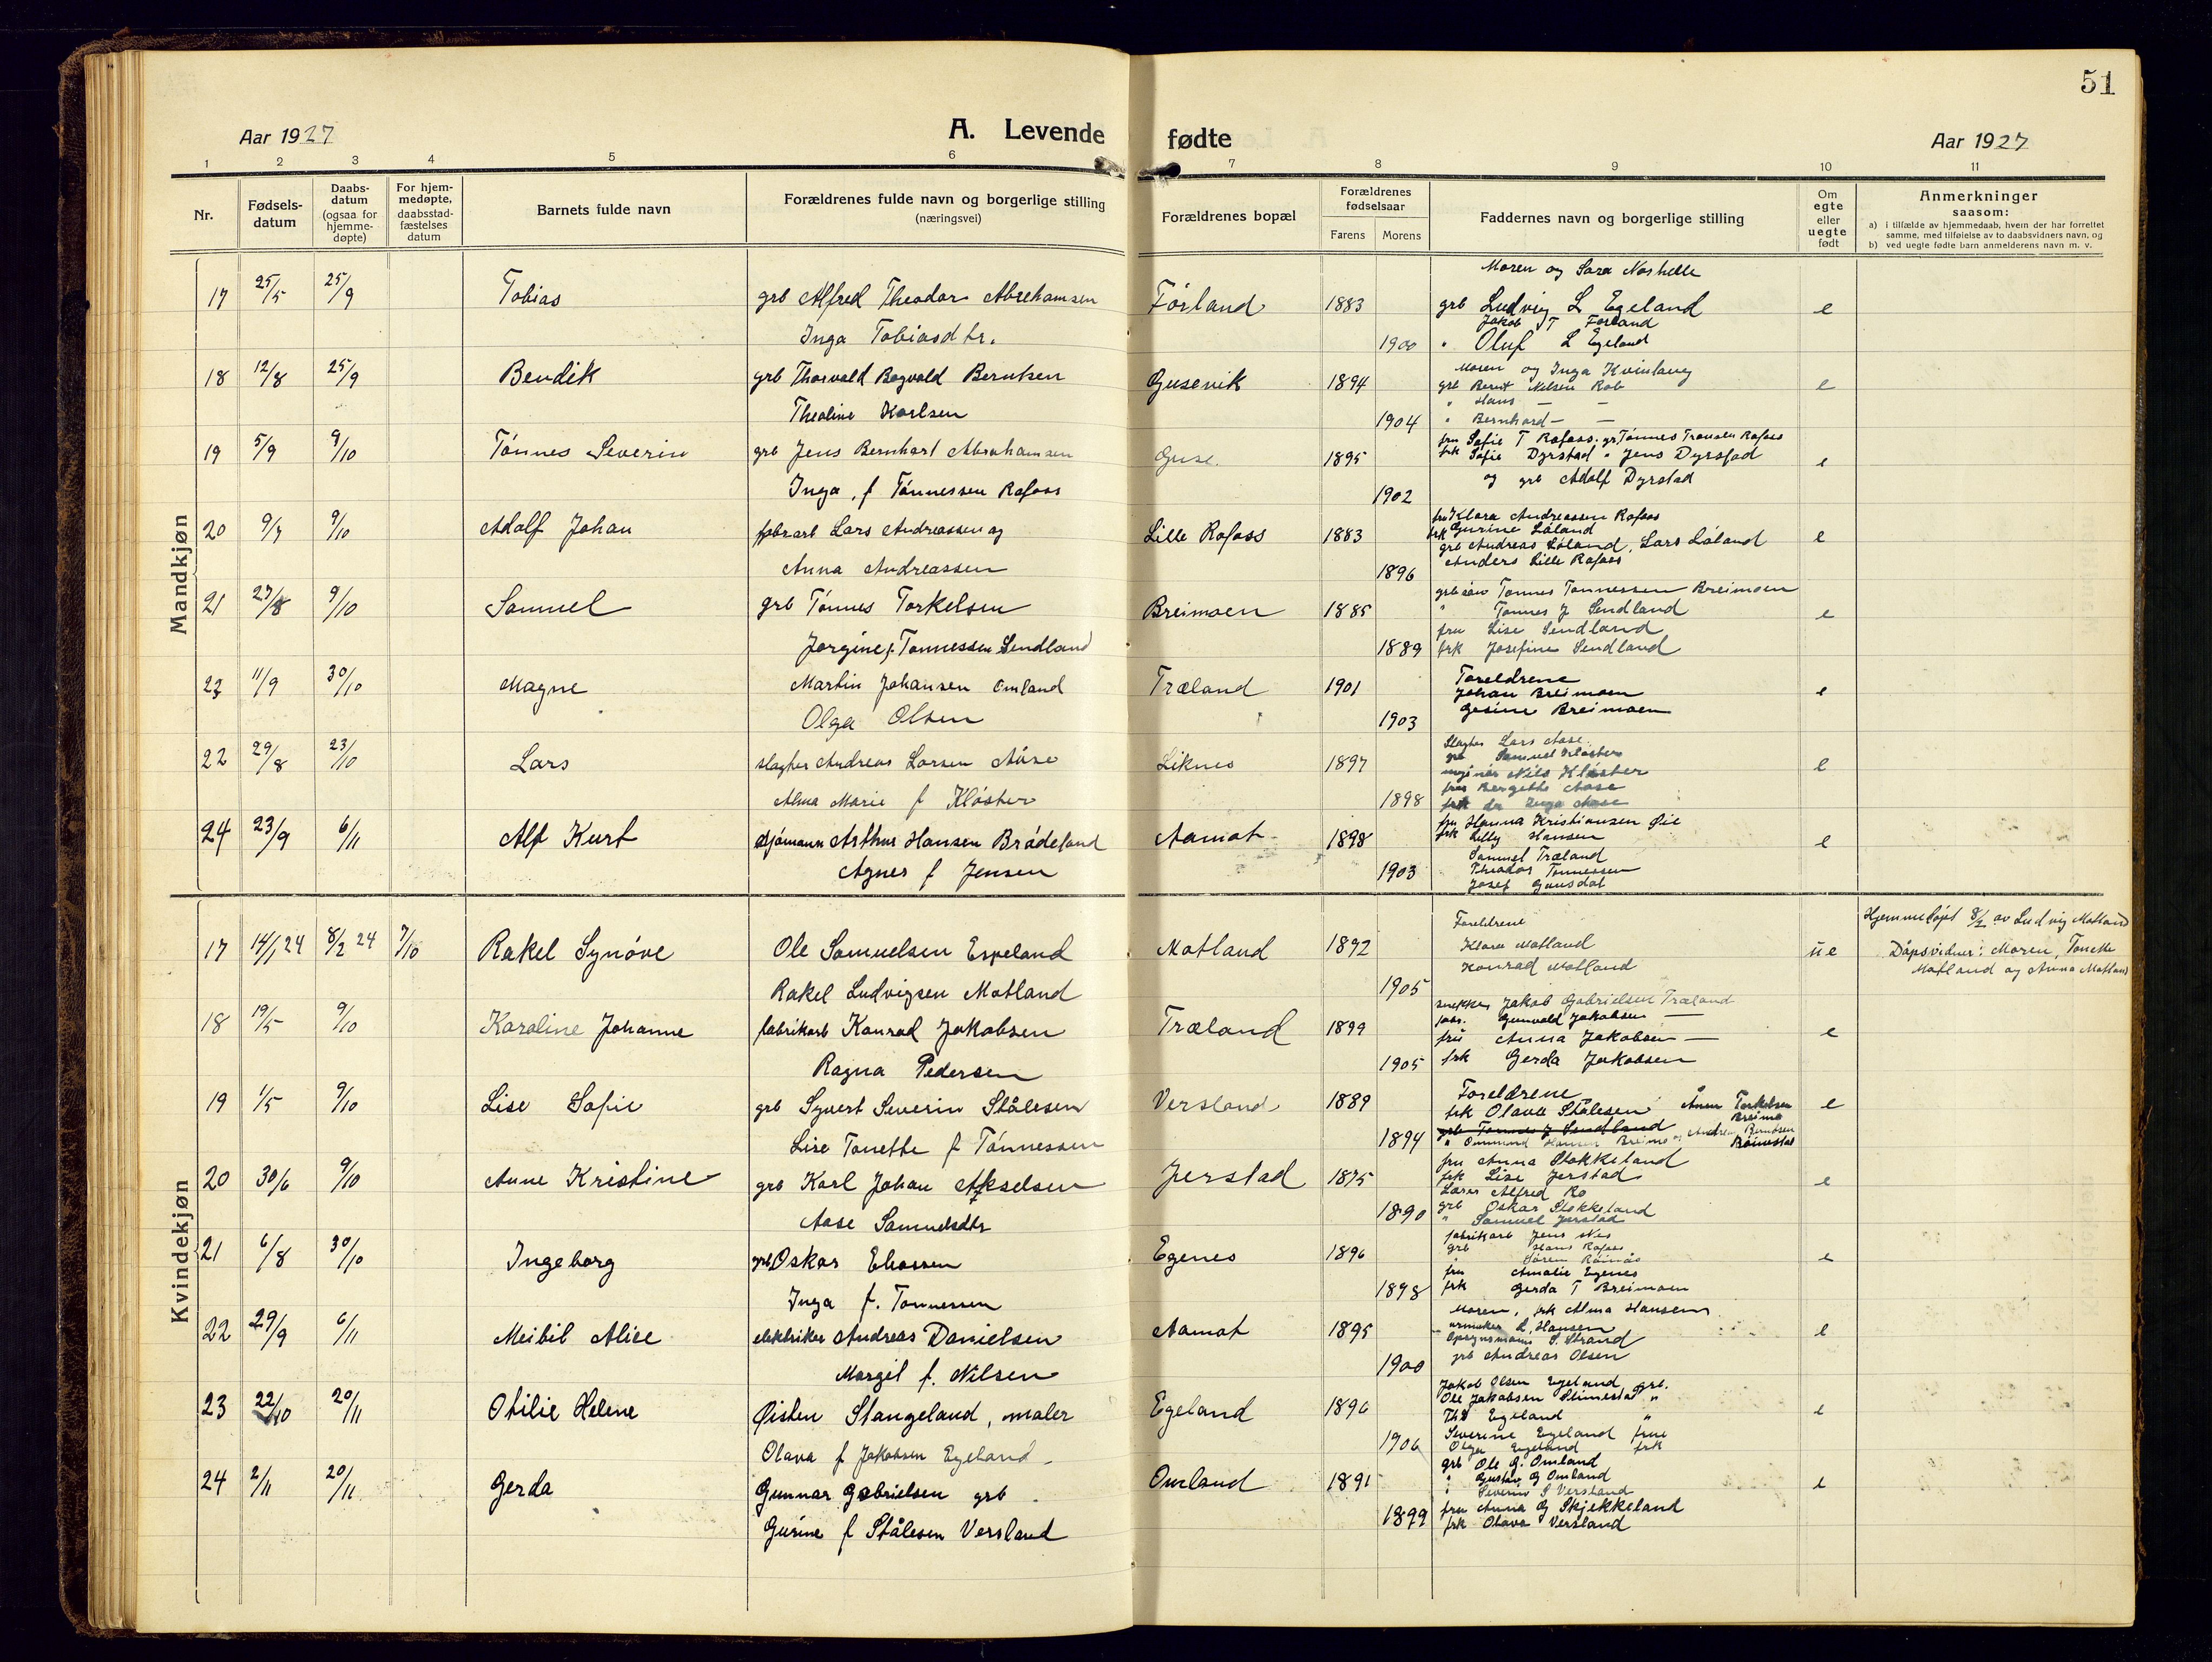 51
Aar 1927
A. Levende fødte
Aar 1927
1 2 3 4 5 6 7 8 9 10 11
Nr.
Fødsels-datum
Daabs-datum (ogsaa for hjemme-døpte)
For hjem-medøpte, daabsstad-fæstelses datum
Barnets fulde navn
Forældrenes fulde navn og borgerlige stilling (næringsvei)
Forældrenes bopæl
Forældrenes fødselsaar
Farens Morens
Faddernes navn og borgerlige stilling
Om egte eller uegte født
Anmerkninger saasom:
a) i tilfælde av hjemmedaab, hvem der har forrettet samme, med tilføielse av to daabsvidners navn, og
b) ved uegte fødte barn anmelderens navn m. v.
Mandkjøn
Moren og Sara
17 25/5 25/9 Tobias grb Alfred Theodor Abrehamsen Førland 1883 grb Ludvig L Egeland e
Jakob T Førland
Inga Tobiasdtr. 1900 " Oluf L Egeland
Moren og Inga
18 12/8 25/9 Bendik grb Thorvald Bagvald Berntsen Gusevik 1894 grb Bernt Nilsen Rob e
" Hans — —
Theoline Karlsen 1904 " Bernhard — —
fru Sofie T Rafoss. gr Tønnes Rafoss
19 5/9 9/10 Tønnes Severin grb Jens Bernhart Abrahamsen Guse. 1895 frk Sofie Dyrstad " Jens Dyrstad e
og grb Adolf Dyrstad
Inga, f Tønnessen Rafoss 1902
fru Klara Andreassen Rafoss
frk Gurine Løland
20 9/7 9/10 Adolf Johan fabrarb Lars Andreassen og Lille Rafoss 1883 grb Andreas Løland, Lars Løland e
Anna Andreassen 1896 Anders Lille Rafoss
Tønnes Tønnessen Breimoen
21 27/8 9/10 Samuel grb Tønnes Torkelsen Breimoen 1885 " Tønnes J Sendland e
fru Lise Sendland
Jørgine f. Tønnessen Sendland 1889 frk Josefine Sendland
23 11/9 30/10 Magne Martin Johansen Omland Træland 1901 Foreldrene e
Johan Breimoen
Olga Olsen 1903 Gesine Breimoen
Slagter Lars Aase
22 29/8 23/10 Lars slagter Andreas Larsen Aase Liknes 1897 grb Samuel Kloster e
Nils Kløster
fru Bergitte Aase
Alma Marie f Kløster 1898 frk Inga Aase
fru Hanna Kristiansen Øie
24 23/9 6/11 Alf Kurt sjømann Arthur Hansen Brådeland Aamot 1898 frk Lilly Hansen e
Samuel Træland
Agnes f Jensen 1903 Theodor Tønnessen
Josef
Kvindekjøn
17 14/1 24 8/2 24 7/10 Rakel Synøve Ole Samuelsen Espeland Matland 1892 Foreldrene ue Hjemmedøpt 8/2 av Ludvig Matland
Klara Matland Dåpsvidner: Moren, Tonette
Konrad Matland Matland og Anna Matland
Rakel Ludvigsen Matland 1905
snekker Jakob Gabrielsen Træland
18 19/5 9/10 Karoline Johanne fabrikarb Konrad Jakobsen Træland 1899 Gunvald Jakobsen — e
fru Anna Jakobsen —
Ragna Pedersen 1905 frk Gerda Jakobsen
19 1/5 9/10 Lise Sofie grb Syvert Severin Stålesen Versland 1889 Foreldrene e
frk Olava Stålesen Torkelsen Breimo
grb Tønnes J Sendland
Lise Tonette f Tønnessen 1894 " Ommund Hansen Breimo
fru Anna Stokkeland
20 30/6 9/10 Anne Kristine grb Karl Johan Akselsen Jerstad 1875 frk Lise Jerstad e
Lærer Alfred Ro
Aase Samuelsdtr 1890 grb Oskar Stokkeland
" Samuel Jerstad
fabrikarb Jens Nes
21 6/8 30/10 Ingeborg grb Oskar Eliassen Egenes 1896 grb Hans Rafoss e
Søren
fru Amalie Egenes
Inga f. Tønnessen 1898 frk Gerda T Breimoen
Moren, frk Alma Hansen
22 29/9 6/11 Meibil Alice elektriker Andreas Danielsen Aamot 1895 urmaker L. Hansen e
S. Strand
Margit f. Nilsen 1900 grb Andreas Olsen
Jakob Olsen Egeland grb.
23 22/10 20/11 Otilie Helene Øisten Stangeland, maler Egeland 1896 Ole Jakobsen Slimestad " e
Egeland "
Severine Egeland frue
Olava f Jakobsen Egeland. 1906 Olga Egeland frk
grb Ole G. Omland
24 2/11 20/11 Gerda Gunnar Gabrielsen grb Omland 1891 " Gustav G Omland e
" Severin S Versland
fru Anna G Skjekkeland
Gurine f Stålesen Versland 1899 frk Olava Versland